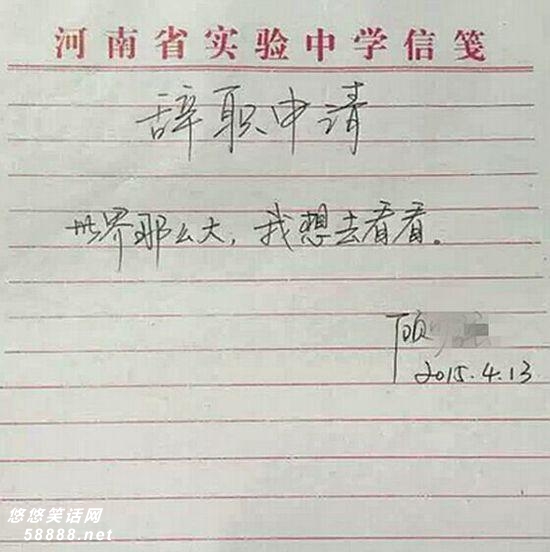 河南省实验中学信笺
辞职申请
世界那么大，我想去看看。
顾
2015.4.13
悠悠笑话网
58888.net